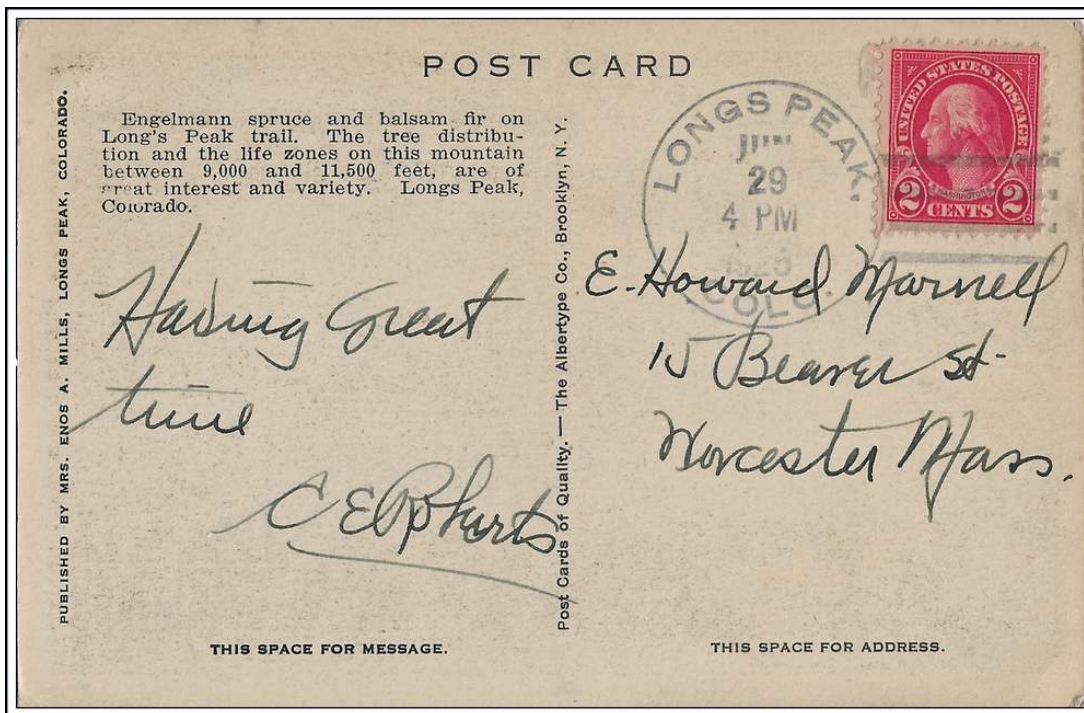 POST CARD
Engelmann spruce and balsam fir on
Long's Peak trail. The tree distribu-
tion and the life zones on this mountain
between 9,000 and 11,500 feet, are of
great interest and variety. Longs Peak,
Colorado.
Having Great
time
PUBLISHED BY MRS. ENOS A. MILLS, LONGS PEAK, COLORADO.
THIS SPACE FOR MESSAGE.
Post Cards of Quality. — The Albertype Co., Brooklyn, N. Y.
LONGS PEAK.
JUN
29
4 PM
COLO.
UNITED STATES POSTAGE
WASHINGTON
2 CENTS 2
E. Howard Marnell
15 Beaver St-
Worcester Mass.
THIS SPACE FOR ADDRESS.